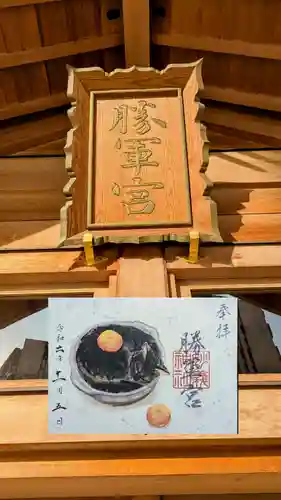 勝軍宮
奉拝
勝軍宮
令和六年十一月五日